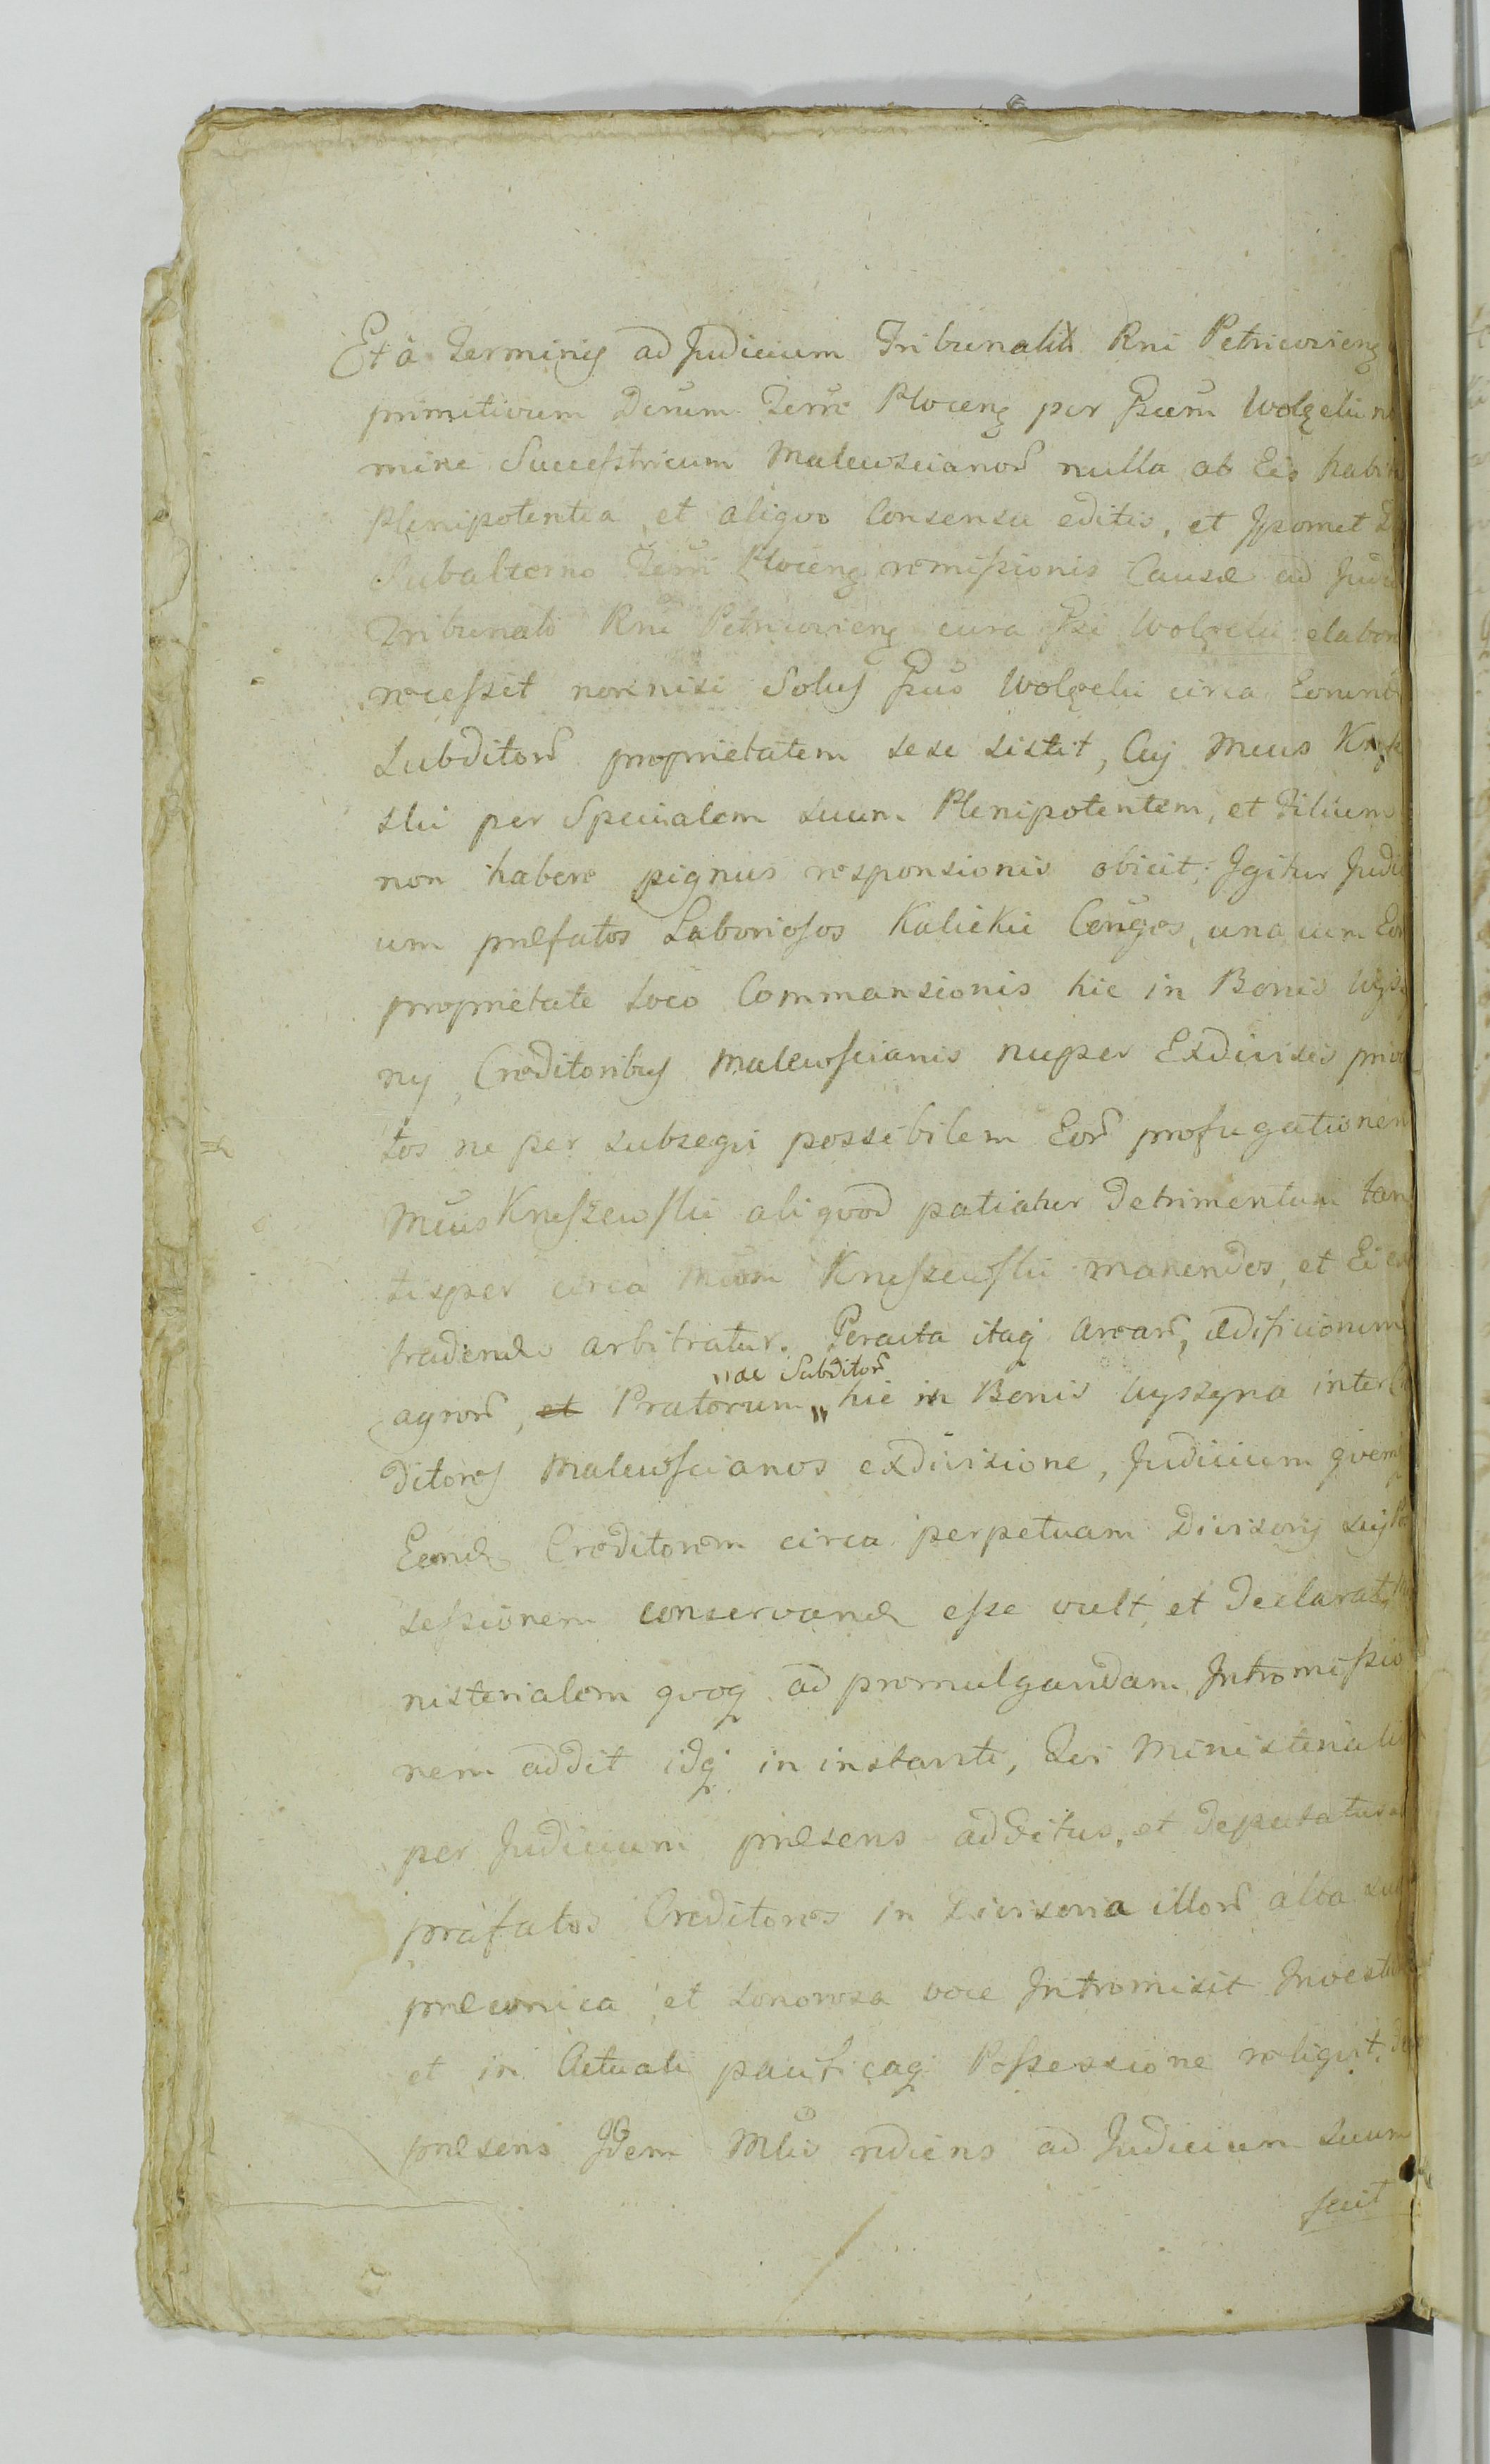 Et à Terminis ad Judicium Tribunalit Rni Petricoviens
primitivum Dcrum Terrae Plocens per Gsum Wolzelii no
mine Successtricum Malewscianor nulla ab Eis habita
Plenipotentia et aliqvo Consensu editis, et Ipsomet
Subalterno Terri Plocens remissionis Causae ad Judi
Tribunali Rni Petricoviens cura Gsi Wolzelii elabora
recessit nonnisi Solus Gsus Wolzelii circa Eorund
Subditor proprietatem sese sistit, Cuj Mcus Knysze
slii per Specialem suum Plenipotentem, et Filium
non habere pignus responsionis obicit; Igitur Judici
um praefatos Laboriosos Kalickii Conges, una cum Eor
proprietate loco Commansionis hic in Bonis Uyszy
ny, Creditoribus Malewscianis nuper Exdivisis priva
tos ne per subsequi possibilem Eor profugationem
Mcus Knyszewslii aliqvod patiatur Detrimentum tan
tisper circa Mcum Knyszewslii manendos, et Ei ex
tradendos arbitratur. Peracta itaq Arear, aedificiorum
agror, et Pratorum " ac Subditor " hic in Bonis Uyszyna inter Cre
ditores Malewscianos exdivisione, Judicium qvemq
Eorund Creditorem circa perpetuam Divisorij sui Pos
sessionem conservand esse vult, et Declarat, Mi
nisterialem qvoq ad promulgandam Intromissio
nem addit idq in instanti, Qui Ministerialis
per Judicium praesens additus, et Deputatus
praefatos Creditores in Divisoria illor alta sua
praeconica, et sonorosa voce Intromisit Investivit
et in Actuali pacificaq Possessione reliqvit,
praesens Idem Mlis rediens ad Judicium suum
fecit